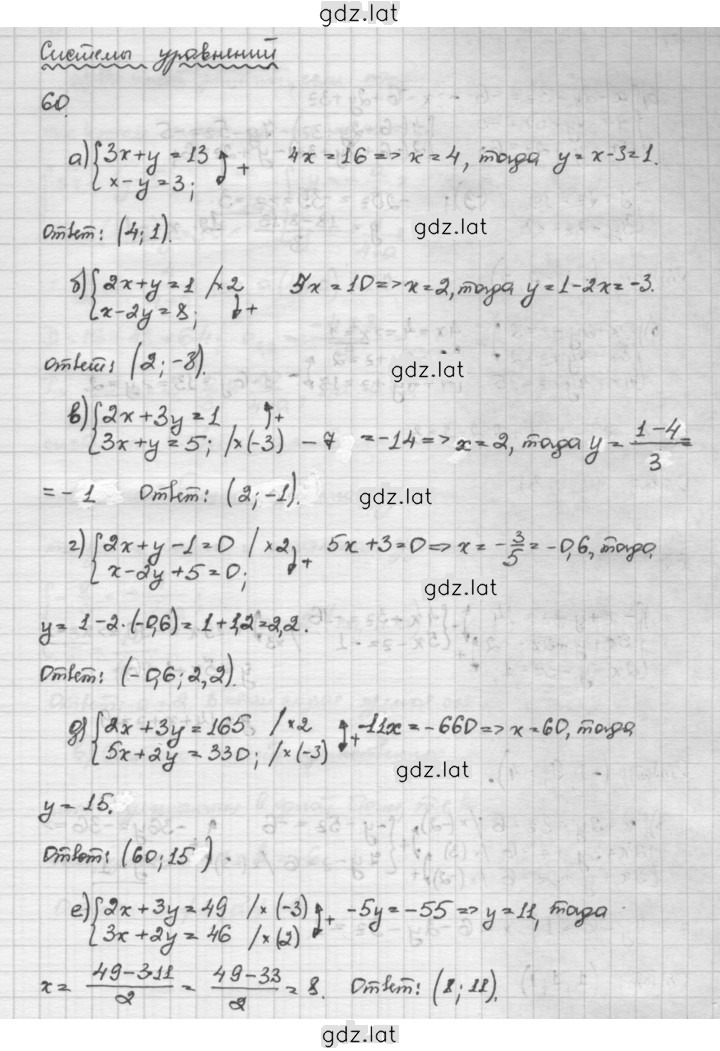 gdz.lat
Системы уравнений
60.
а) {3x+y=13 x-y=3; + 4x=16=>x=4, тогда y=x-3=1.
Ответ: (4; 1).
gdz.lat
б) {2x+y=1 /×2 x-2y=8; + 5x=10=>x=2, тогда y=1-2x=-3.
Ответ: (2; -3).
gdz.lat
в) {2x+3y=1 3x+y=5; /×(-3) + -7 =-14=>x=2, тогда y= (1-4)/3 =
=-1 Ответ: (2; -1).
gdz.lat
г) {2x+y-1=0 /×2 x-2y+5=0; + 5x+3=0=>x=-3/5=-0,6, тогда
gdz.lat
y=1-2·(-0,6)=1+1,2=2,2.
Ответ: (-0,6; 2,2).
д) {2x+3y=165 /×2 5x+2y=330; /×(-3) + -11x=-660=>x=60, тогда
gdz.lat
y=15.
Ответ: (60; 15)
е) {2x+3y=49 /×(-3) 3x+2y=46 /×(2) + -5y=-55=>y=11, тогда
x= (49-3·11)/2 = (49-33)/2 =8. Ответ: (8; 11).
gdz.lat